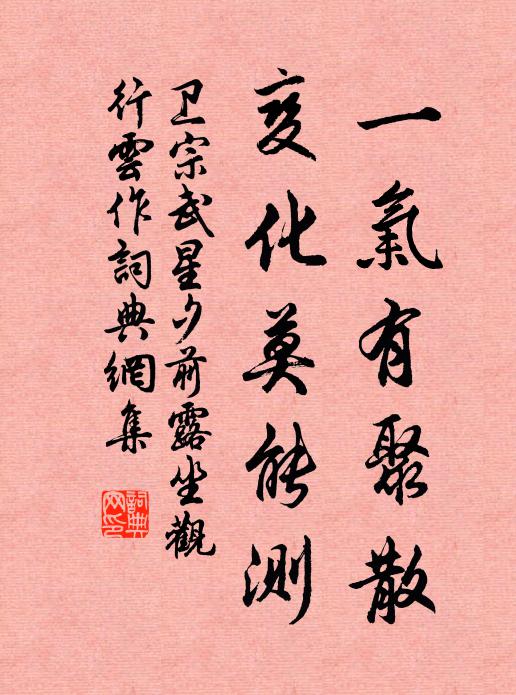 一氣有聚散
变化莫能测
卫宗武星夕前露坐觀
行雲作詞典網集
詞典网印